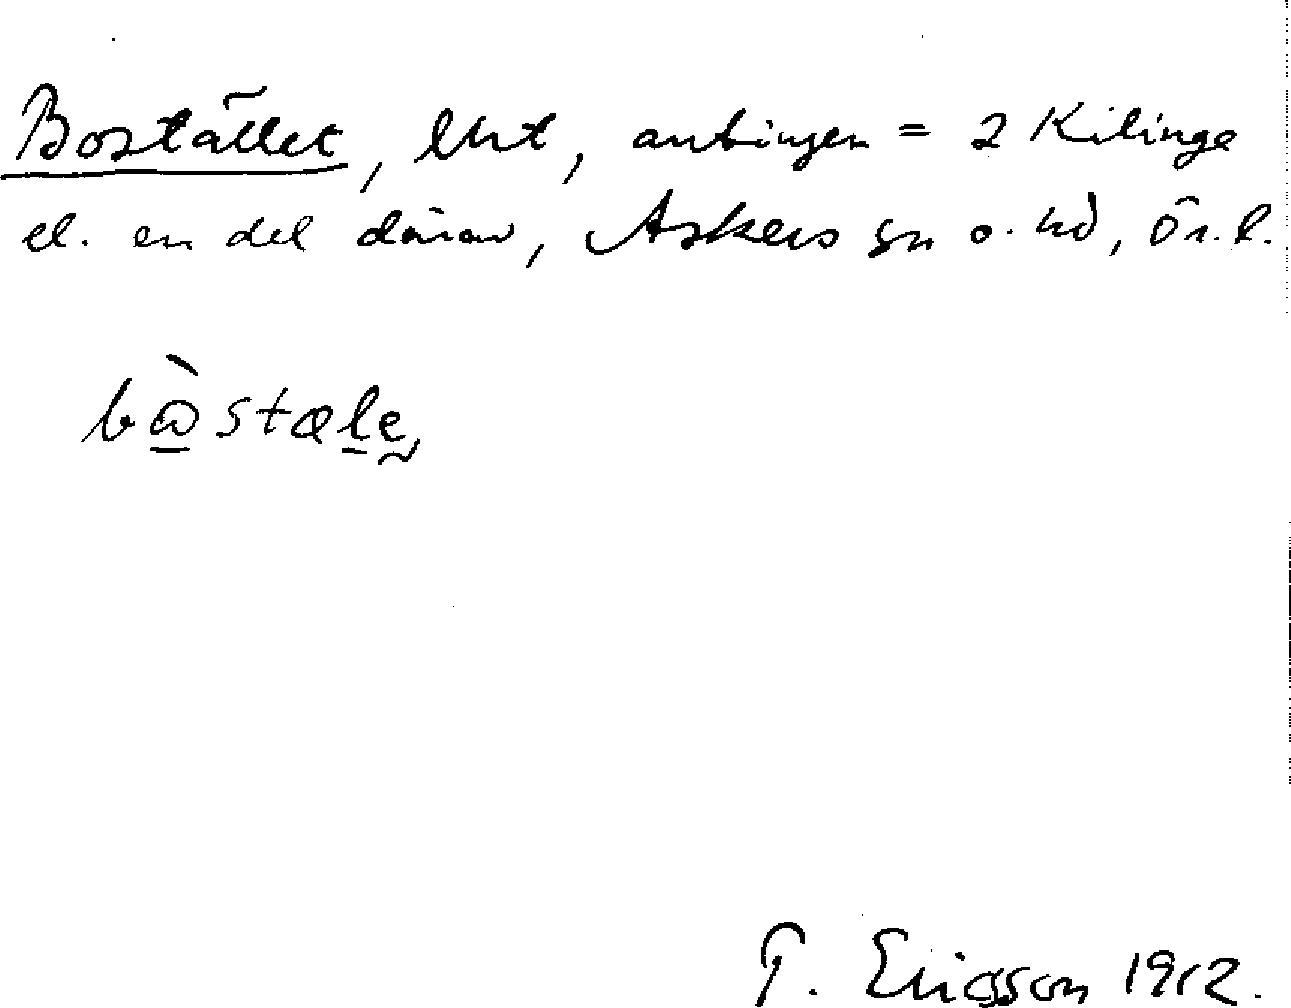 Bostället, lht, antingen = 2 Kilinge
el. en del därav, Askers sn o. hd, Ör. l.
bàstæle
G. Ericsson 1912.